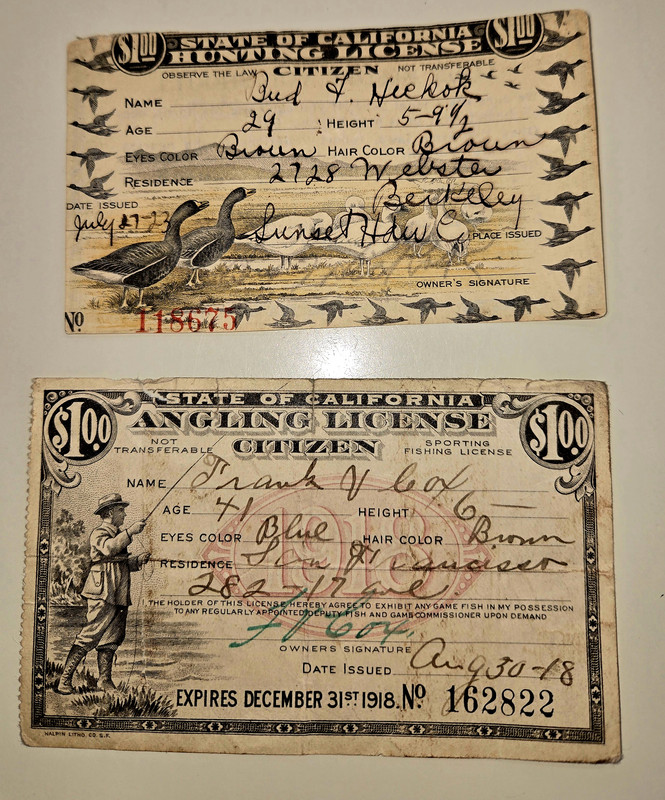 $1.00 STATE OF CALIFORNIA $1.00
HUNTING LICENSE
OBSERVE THE LAW CITIZEN NOT TRANSFERABLE
NAME Bud F. Hickok
AGE 29 HEIGHT 5-9½
EYES COLOR Brown HAIR COLOR Brown
RESIDENCE 2728 Webster
Berkeley
DATE ISSUED
July 27 23 Sunset Hdw Co PLACE ISSUED
OWNER'S SIGNATURE
No 118675
STATE OF CALIFORNIA
$1.00 ANGLING LICENSE $1.00
NOT TRANSFERABLE CITIZEN SPORTING FISHING LICENSE
NAME Frank V Cox
AGE 41 HEIGHT 6—
EYES COLOR Blue HAIR COLOR Brown
1918
RESIDENCE San Francisco
282-17 ave
THE HOLDER OF THIS LICENSE HEREBY AGREE TO EXHIBIT ANY GAME FISH IN MY POSSESSION
TO ANY REGULARLY APPOINTED DEPUTY FISH AND GAME COMMISSIONER UPON DEMAND
Cox.
OWNERS SIGNATURE
DATE ISSUED Aug 30-18
EXPIRES DECEMBER 31ST 1918. No 162822
HALPIN LITHO. CO. S.F.